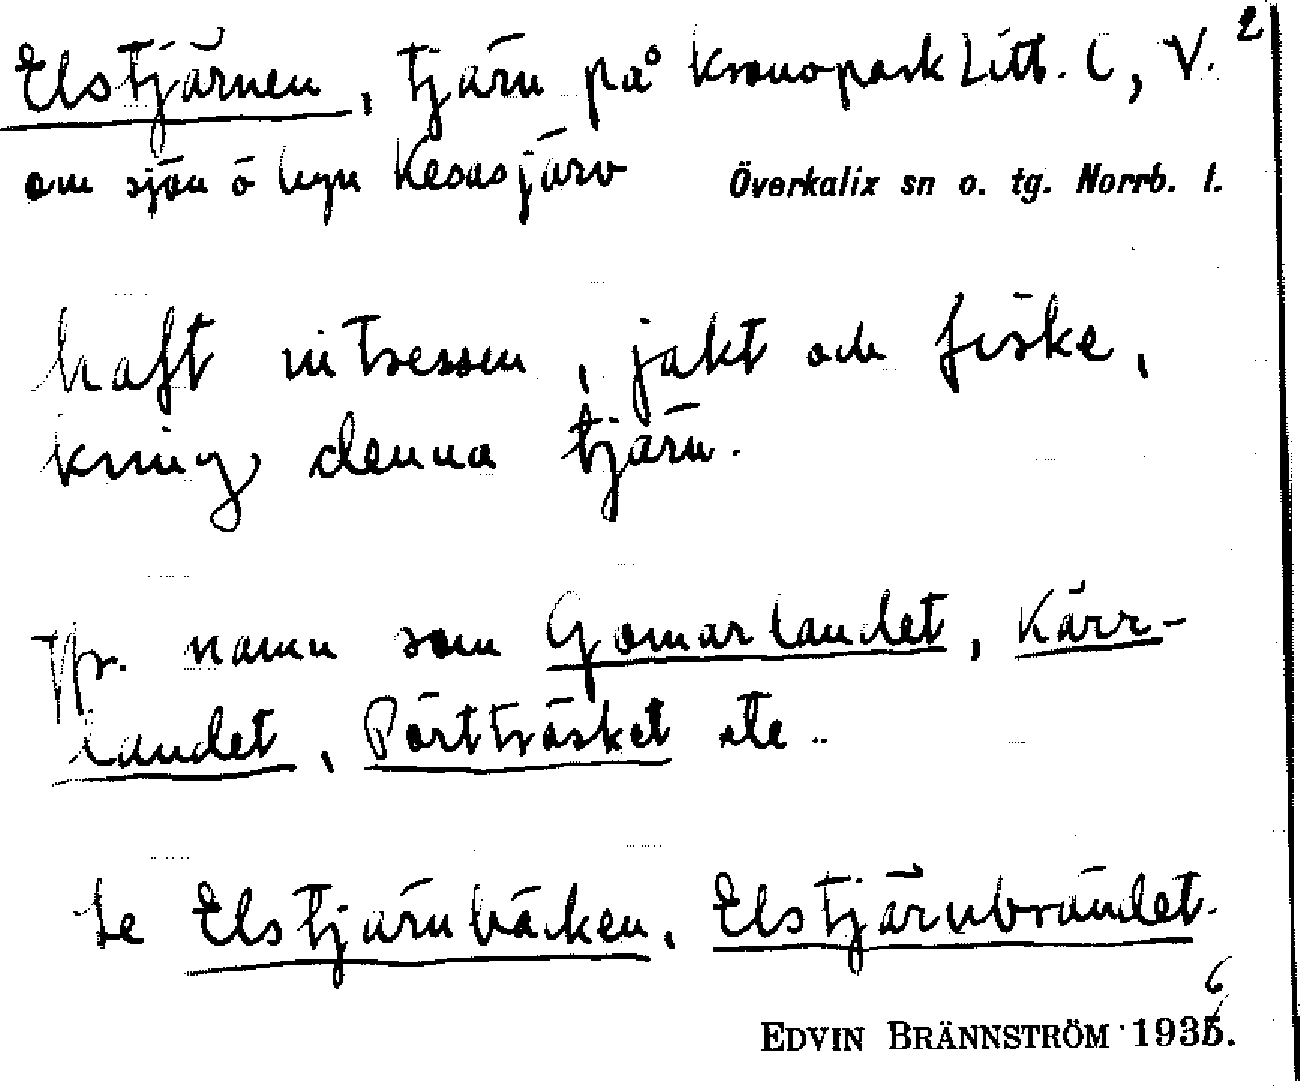 Elstjärnen, tjärn på kronopark Litt. C, V. 2
om sjön ö byn Kesasjärv Överkalix sn o. tg. Norrb. l.
haft intressen, jakt och fiske,
kring denna tjärn.
Jfr. namn som Gomarlandet, Kärr-
landet, Pörtträsket etc..
Se Elstjärnbäcken, Elstjärnbrändet.
6
EDVIN BRÄNNSTRÖM 1935.